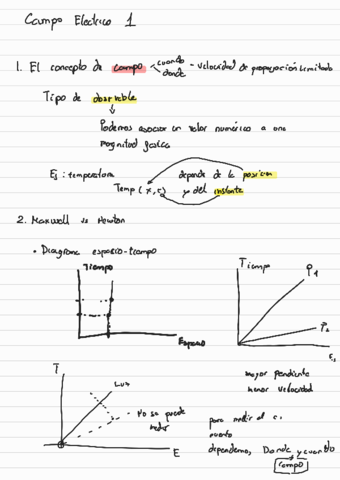 Campo Electrico 1
1. El concepto de campo cuando donde - velocidad de propagación limitado
Tipo de observable
Podemos asociar un valor numérico a una
magnitud fisica
Ej: temperatura depende de la posicion
Temp (x,t) y del instante
2. Maxwell vs Newton
• Diagrama espacio-tiempo
Tiempo
Espacio
Tiempo
P1
P2
E
mayor pendiente
menor velocidad
T
Luz
No se puede
medir
E
para medir el
dependemos, Donde y cuando
campo